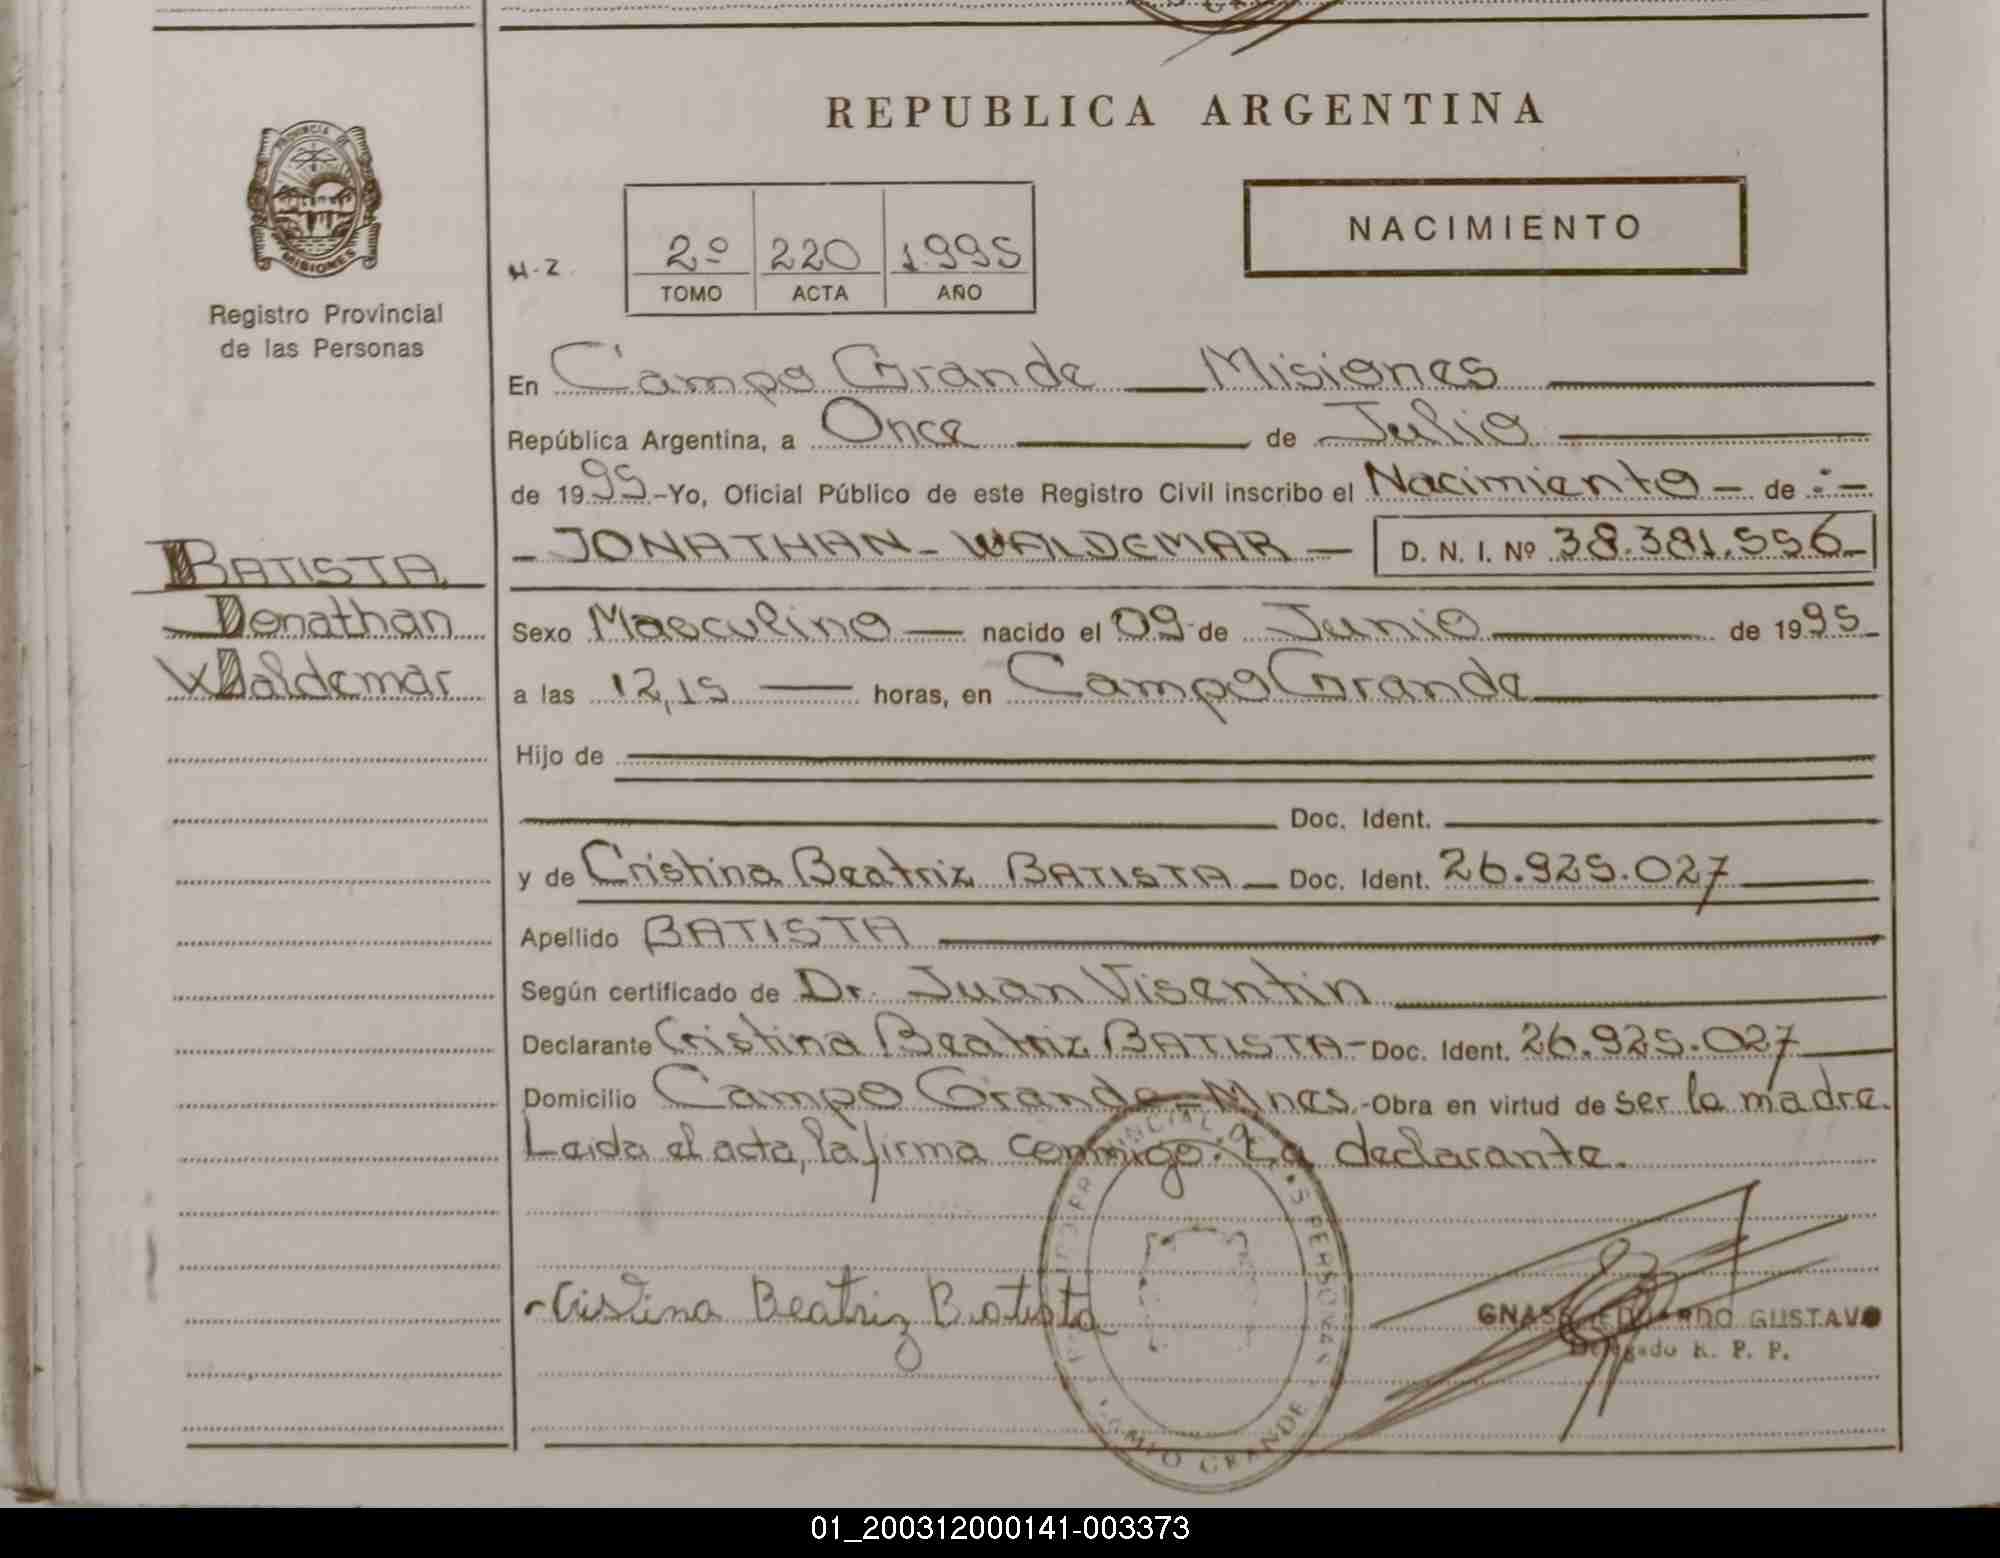 REPUBLICA ARGENTINA
PROVINCIA DE
MISIONES
Registro Provincial
de las Personas
NACIMIENTO
H-2.
2º 220 1995
TOMO ACTA AÑO
En Campo Grande — Misiones —
República Argentina, a Once — de Julio —
de 1995.-Yo, Oficial Público de este Registro Civil inscribo el Nacimiento - de -:-
- JONATHAN - WALDEMAR — D. N. I. Nº 38.381.556-
BATISTA
Jonathan
Waldemar
Sexo Masculino — nacido el 09 de Junio — de 1995-
a las 12,15 — horas, en Campo Grande —
Hijo de —
— Doc. Ident. —
y de Cristina Beatriz BATISTA - Doc. Ident. 26.925.027 —
Apellido BATISTA —
Según certificado de Dr. Juan Visentin —
Declarante Cristina Beatriz BATISTA - Doc. Ident. 26.925.027 —
Domicilio Campo Grande - Mnes.-Obra en virtud de ser la madre.
Leida el acta, la firma conmigo. La declarante.
- Cristina Beatriz Batista
PROVINCIAL DE LAS PERSONAS
CAMPO GRANDE
EDUARDO GUSTAVO
Delegado R. P. P.
01_200312000141-003373